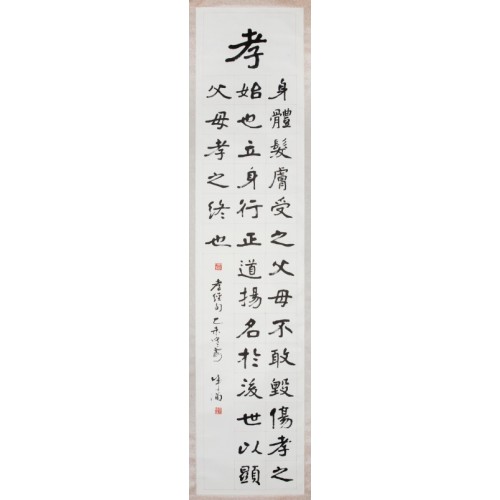 孝
身體髮膚受之父母不敢毀傷孝之
始也立身行正道揚名於後世以顯
父母孝之終也
孝經句 乙未冬